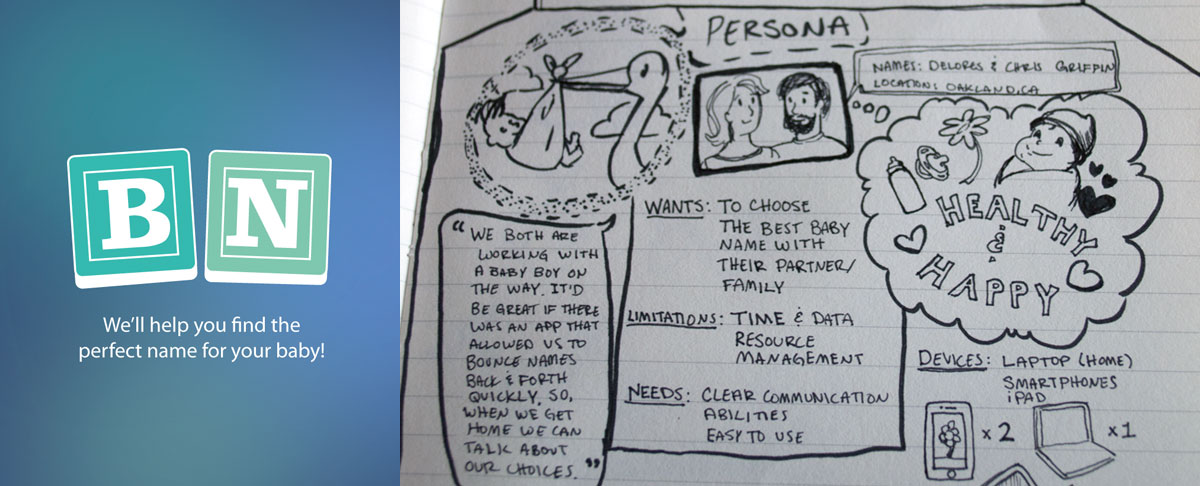 B N
We'll help you find the
perfect name for your baby!
PERSONA
NAMES: DELORES & CHRIS GRIFFIN
LOCATION: OAKLAND, CA
"WE BOTH ARE
WORKING WITH
A BABY BOY ON
THE WAY. IT'D
BE GREAT IF THERE
WAS AN APP THAT
ALLOWED US TO
BOUNCE NAMES
BACK & FORTH
QUICKLY. SO,
WHEN WE GET
HOME WE CAN
TALK ABOUT
OUR CHOICES."
WANTS: TO CHOOSE
THE BEST BABY
NAME WITH
THEIR PARTNER/
FAMILY
LIMITATIONS: TIME & DATA
RESOURCE
MANAGEMENT
NEEDS: CLEAR COMMUNICATION
ABILITIES
EASY TO USE
HEALTHY
&
HAPPY
DEVICES: LAPTOP (HOME)
SMARTPHONES
iPAD
x2
x1